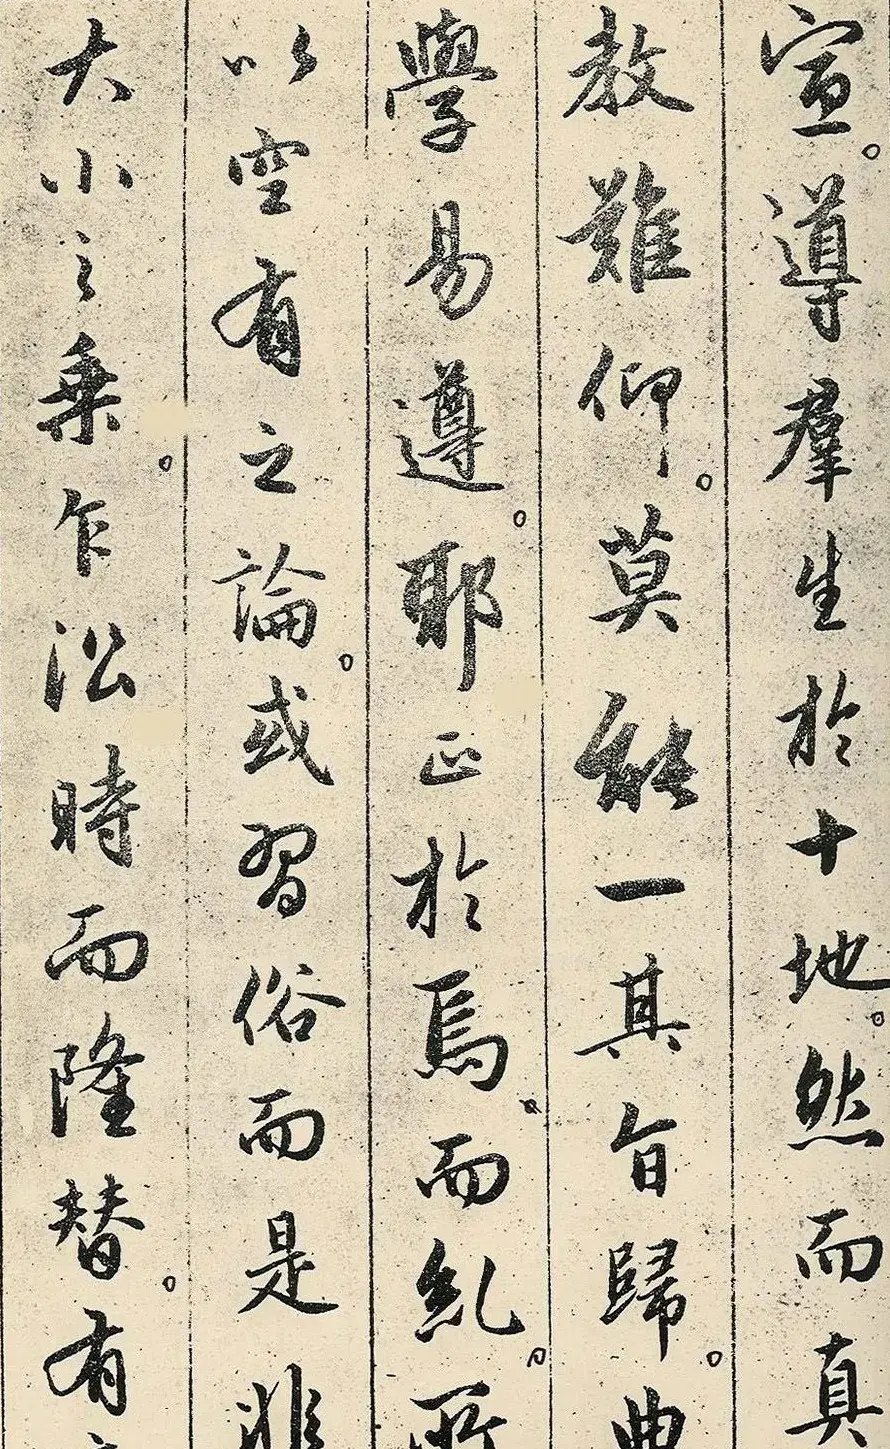 宣。導羣生於十地。然而真
教難仰。莫能一其旨歸。曲
學易遵。耶正於焉。而糺。所
以空有之論。或習俗而是非
大小之乘。乍沿時而隆替。有